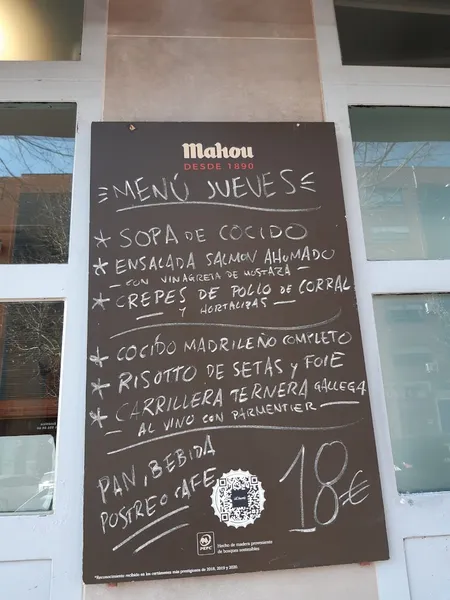 Mahou
DESDE 1890
MENÚ JUEVES
* SOPA DE COCIDO
* ENSALADA SALMON AHUMADO
- CON VINAGRETA DE MOSTAZA -
* CREPES DE POLLO DE CORRAL
- Y HORTALIZAS -
* COCIDO MADRILEÑO COMPLETO
* RISOTTO DE SETAS Y FOIE
* CARRILLERA TERNERA GALLEGA
- AL VINO CON PARMENTIER -
PAN, BEBIDA
POSTRE O CAFE
18€
PEFC
Hecho de madera proveniente
de bosques sostenibles.
*Reconocimiento recibido en los certámenes más prestigiosos de 2018, 2019 y 2020.